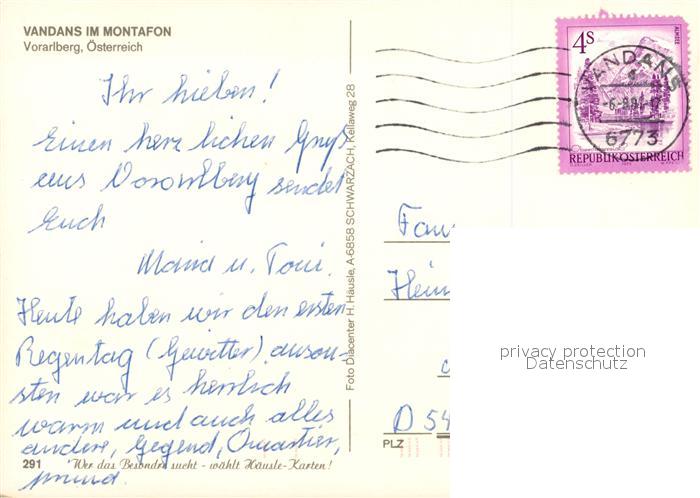 VANDANS IM MONTAFON
Vorarlberg, Österreich
Ihr lieben!
Einen herzlichen Gruß
aus Vorarlberg sendet
Euch
Maria u. Toni.
Heute haben wir den ersten
Regentag (Gewitter) anson-
sten war es herrlich
warm und auch alles
andere, Gegend, Quartier,
prima.
291 Wer das Besondre sucht - wählt Häusle-Karten!
Foto Diacenter H. Häusle, A-6858 SCHWARZACH, Kellaweg 28
4S
ALMSEE
VANDANS
6773
REPUBLIK ÖSTERREICH
Fam
Hein
D 54
PLZ
privacy protection
Datenschutz